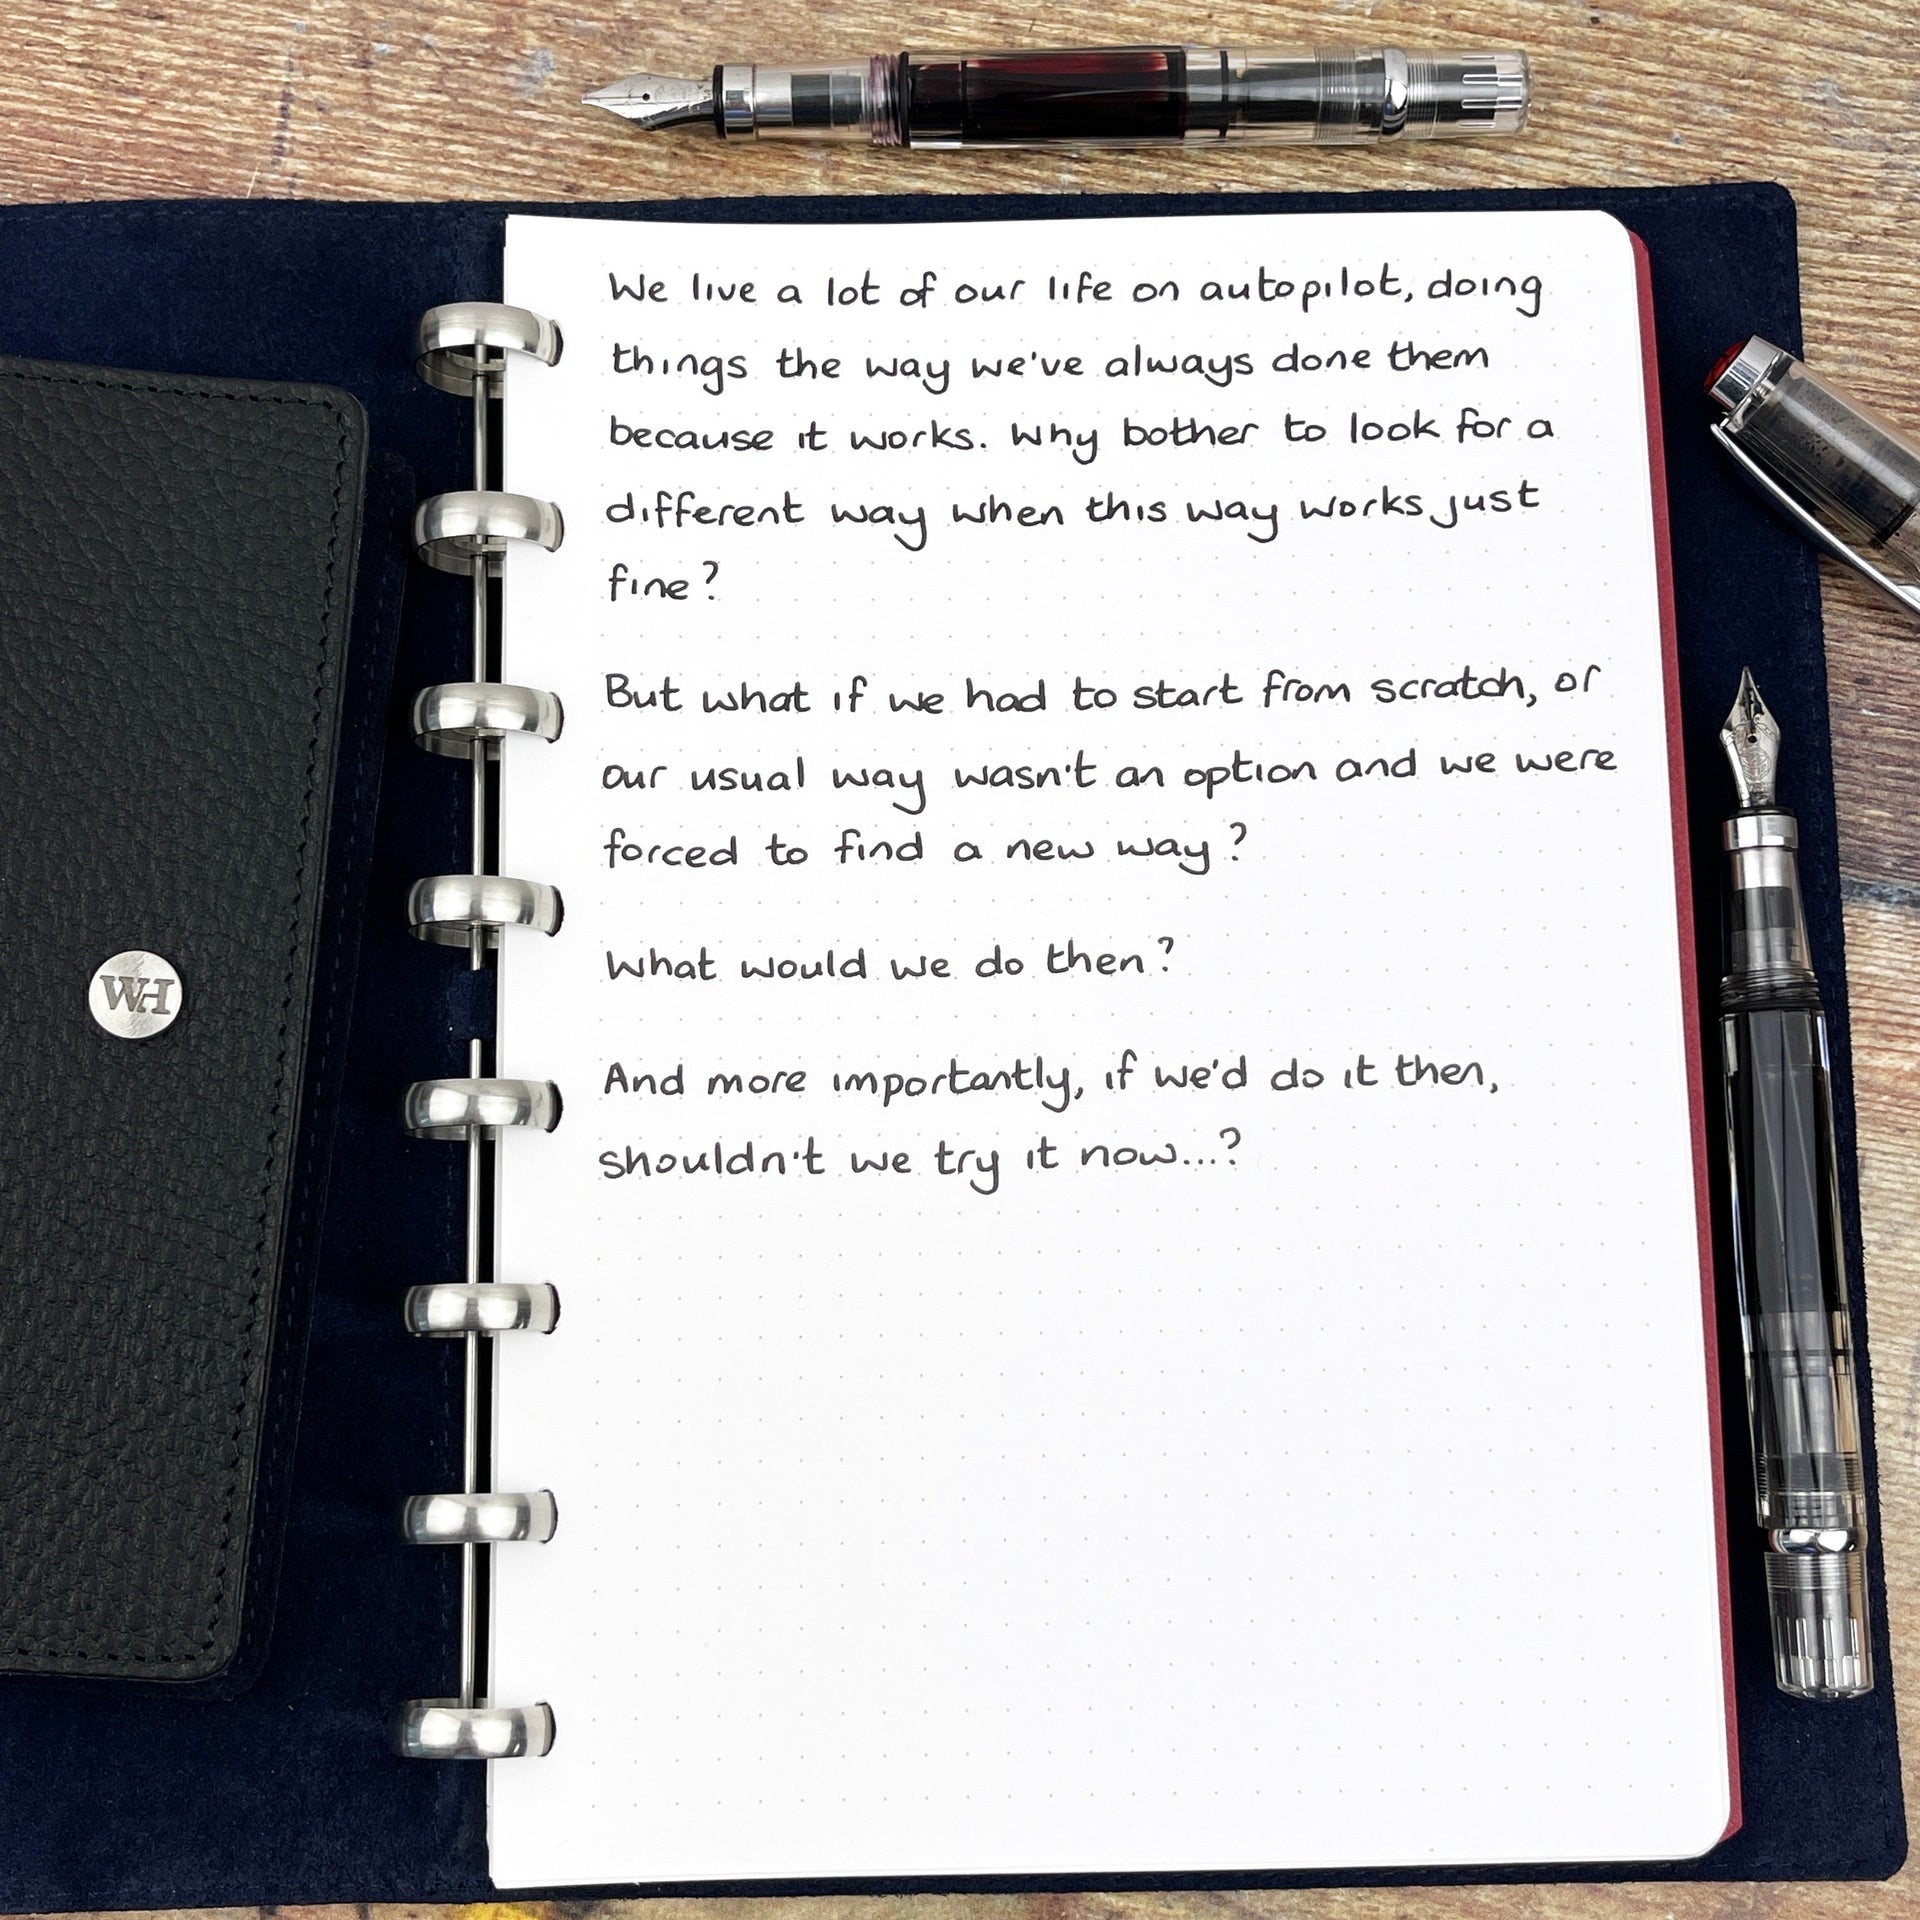 We live a lot of our life on autopilot, doing
things the way we've always done them
because it works. Why bother to look for a
different way when this way works just
fine?
But what if we had to start from scratch, or
our usual way wasn't an option and we were
forced to find a new way?
What would we do then?
And more importantly, if we'd do it then,
shouldn't we try it now...?
WH